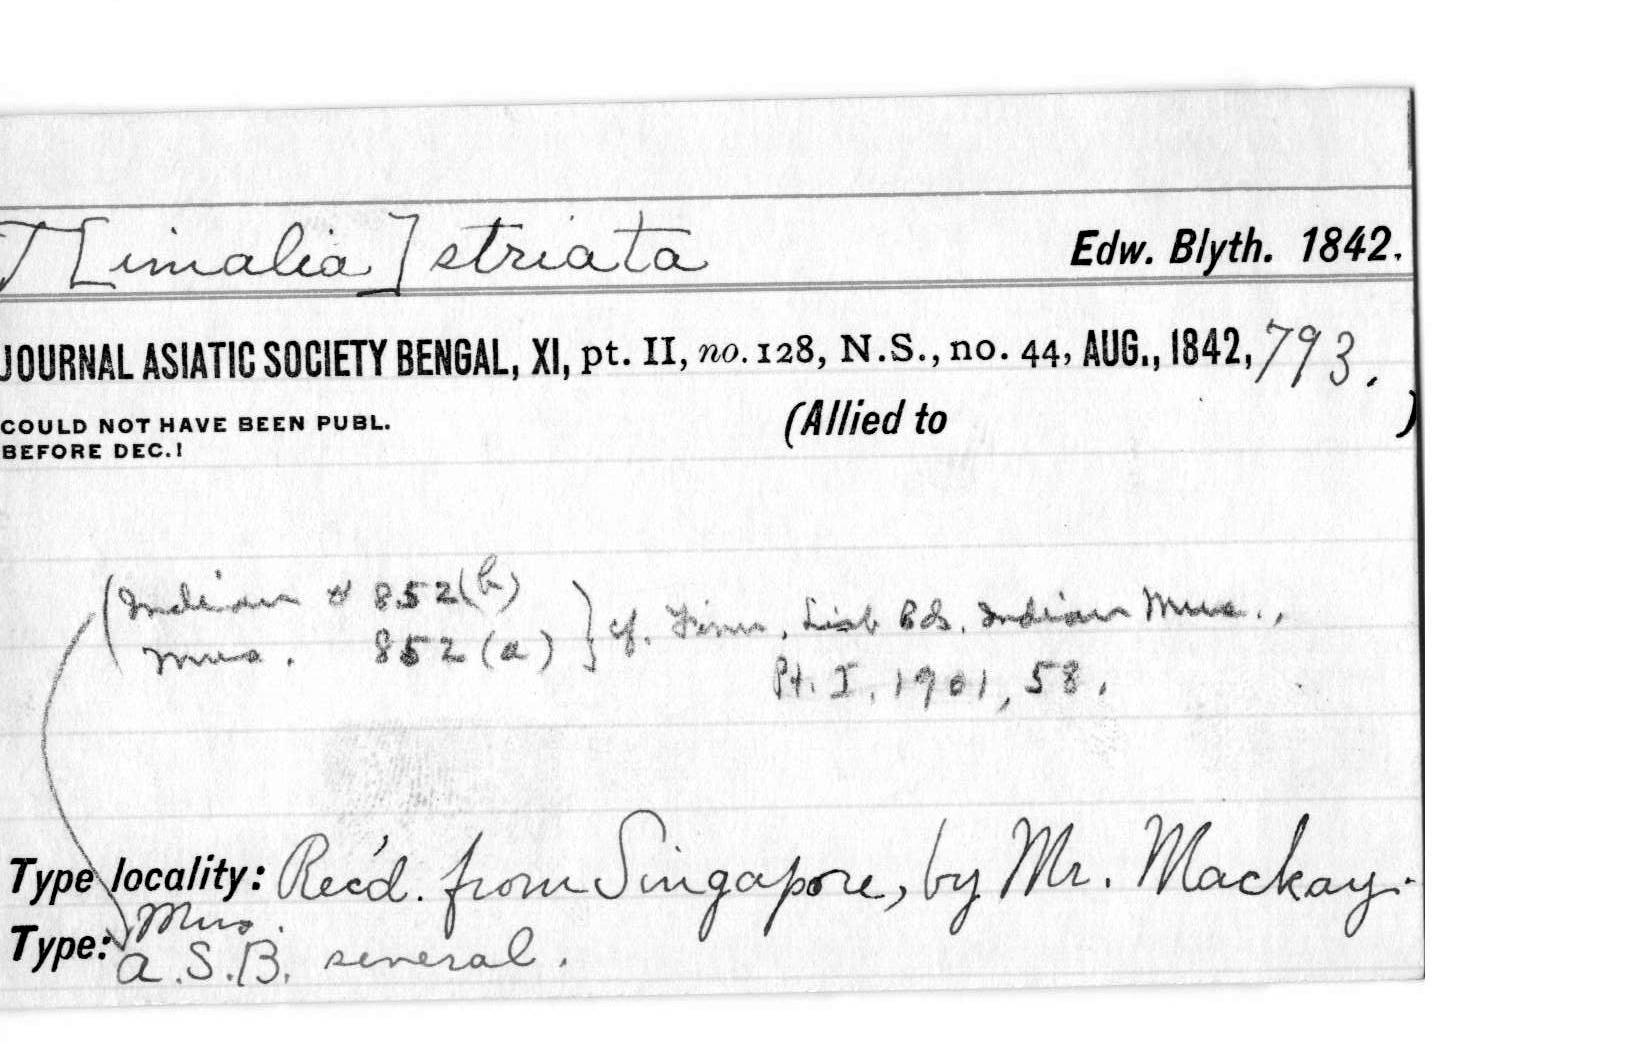 T[imalia] striata Edw. Blyth. 1842.
JOURNAL ASIATIC SOCIETY BENGAL, XI, pt. II, no. 128, N.S., no. 44, AUG., 1842, 793.
COULD NOT HAVE BEEN PUBL. (Allied to )
BEFORE DEC.!
(Indian # 852(b) } cf. Finn, List Bds. Indian Mus.,
Mus. 852(a)
Pt. I, 1901, 58.
Type locality: Rec'd. from Singapore, by Mr. Mackay.
Mus.
Type: A.S.B. several.